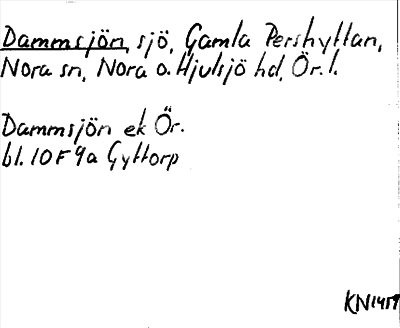 Dammsjön, sjö, Gamla Pershyttan,
Nora sn, Nora o. Hjulsjö hd, Ör. l.
Dammsjön ek Ör.
bl. 10 F 9a Gyttorp